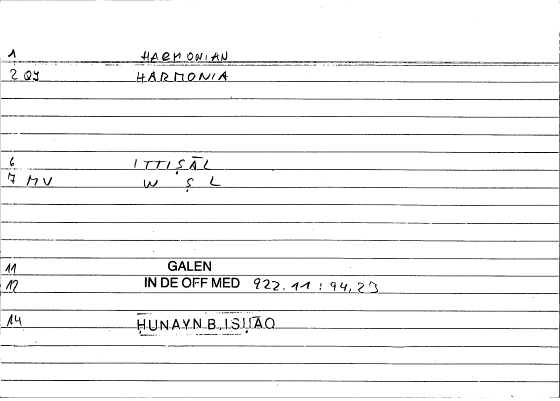 1 HARMONIAN
2 HARMONIA
6 ITTIṢĀL
7 MV W Ṣ L
11 GALEN
12 IN DE OFF MED 922.11 : 94,23
14 ḤUNAYN B. ISḤĀQ